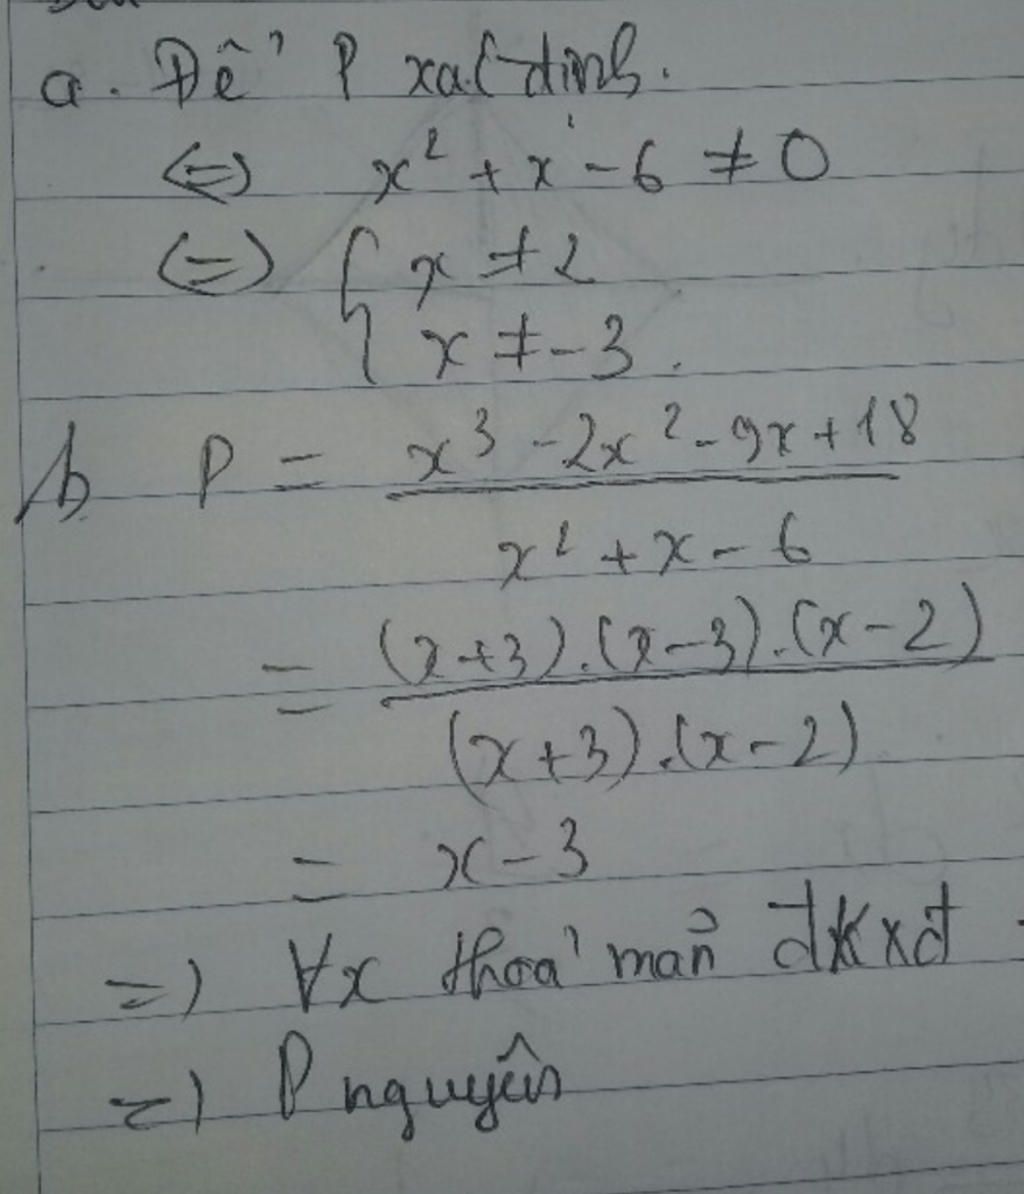 a. Để P xác định.
<=> x² + x - 6 ≠ 0
<=> { x ≠ 2
x ≠ -3.
b. P = x³ - 2x² - 9x + 18
x² + x - 6
= (x+3).(x-3).(x-2)
(x+3).(x-2)
= x - 3
=> ∀x thoả mãn đkxđ
=> P nguyên